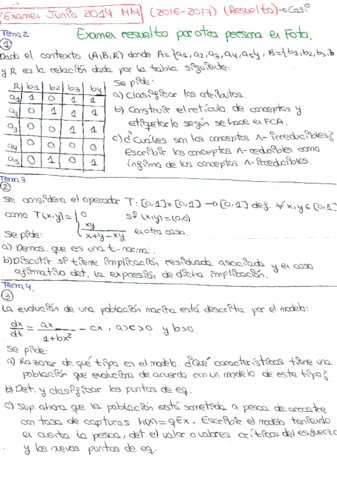 Examen Junio 2014 MM (2016-2017) (Resuelto) → Casi
Tema 2
Examen resuelto por otra persona en Foto.
①
Dado el contexto (A,B,R) donde A={a1,a2,a3,a4,a5}, B={b1,b2,b3,b4}
y R es la relación dada por la tabla siguiente:
Se pide:
R b1 b2 b3 b4
a1 1 0 1 1
a2 0 1 1 1
a3 0 0 0 1
a4 0 0 1 1
a5 0 1 0 1
a) Clasificar los atributos.
b) Construir el retículo de conceptos y
etiquetarlo según se hace en FCA.
c) ¿Cuáles son los conceptos ∧-irreducibles?
Escribir los conceptos ∧-reducibles como
ínfimo de los conceptos ∧-irreducibles.
Tema 3
②
Se considera el operador T: [0,1]x[0,1] → [0,1] def. ∀x,y∈[0,1]
como T(x,y) = { 0 si (x,y)=(0,0)
xy / x+y-xy en otro caso.
Se pide:
a) Demos. que es una t-norma.
b) Discutir si tiene implicación residuada asociada y en caso
afirmativo det. la expresión de dicha implicación.
Tema 4.
③
La evolución de una población marina está descrita por el modelo:
dx/dt = ax / 1+bx² - cx, a>c>0 y b>0.
Se pide:
a) Razonar de qué tipo es el modelo ¿Qué características tiene una
población que evoluciona de acuerdo con un modelo de este tipo?
b) Det. y clasificar los puntos de eq.
c) Sup. ahora que la población está sometida a pesca de arrastre
con tasa de capturas h(x)=qEx. Escribe el modelo teniendo
en cuenta la pesca, det. el valor o valores críticos del esfuerzo
y los nuevos puntos de eq.